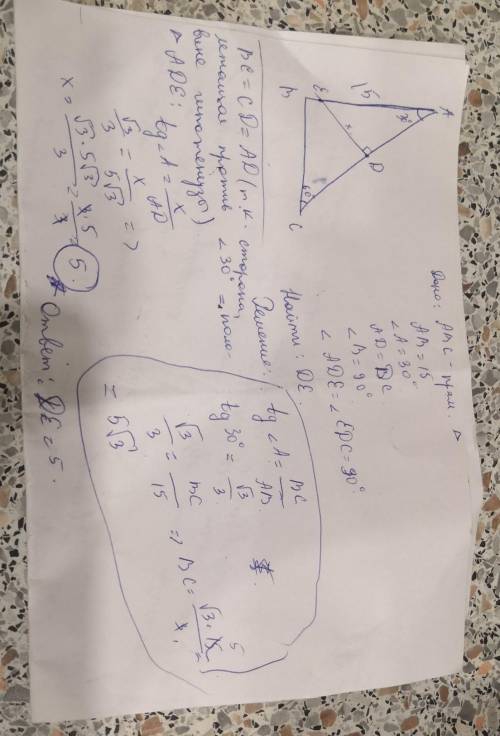 Дано: ABC - прям. △
AB = 15
∠A = 30°
AD = DC
∠B = 90°
∠ADE = ∠EDC = 90°
Найти: DE.
Решение:
A
30°
15
E
B
D
60°
C
tg∠A = BC/AB
tg 30° = √3/3
√3/3 = BC/15 => BC = √3·15/3 =
5
= 5√3
BC = CD = AD (т.к. сторона,
лежащая против ∠30° = поло-
вине гипотенузы)
△ADE: tg∠A = x/AD
√3/3 = x/5√3 =>
x = √3·5√3/3 = 3·5/3 = 5.
Ответ: DE = 5.